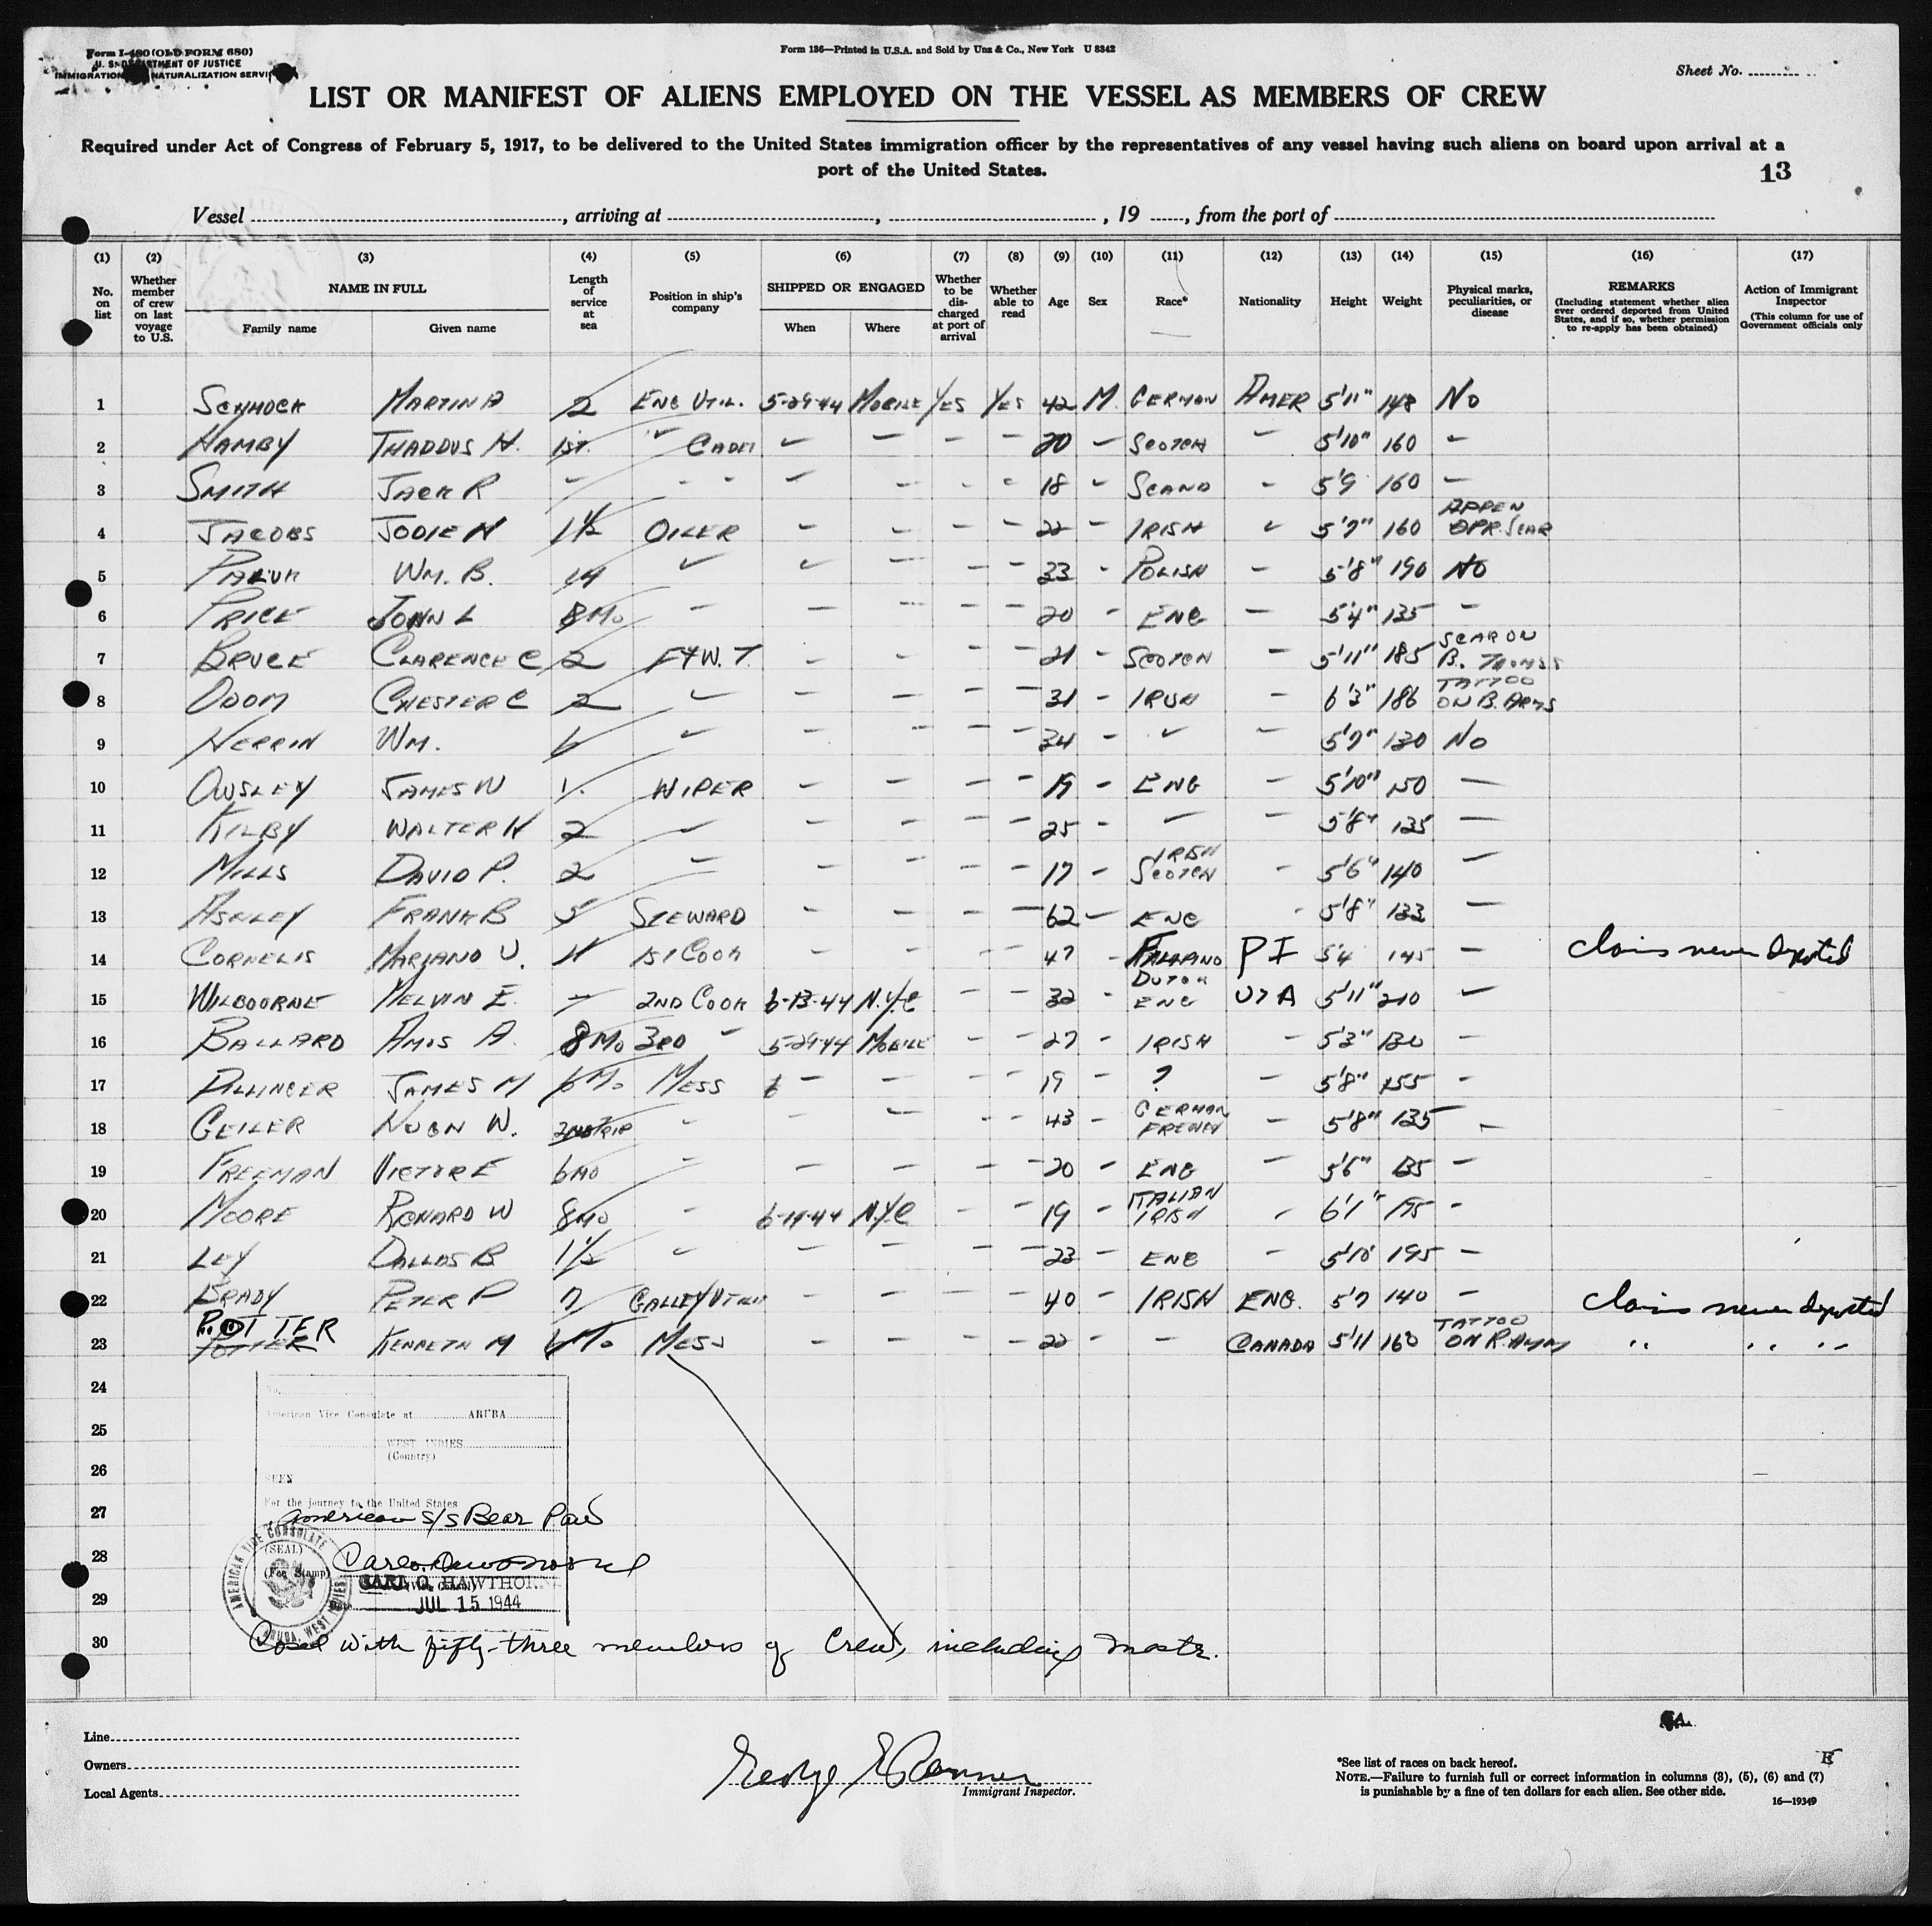 Form I-480 (OLD FORM 680)
U. S. DEPARTMENT OF JUSTICE
IMMIGRATION NATURALIZATION SERVICE
Form 136—Printed in U.S.A. and Sold by Unz & Co., New York U 8342
Sheet No.
LIST OR MANIFEST OF ALIENS EMPLOYED ON THE VESSEL AS MEMBERS OF CREW
Required under Act of Congress of February 5, 1917, to be delivered to the United States immigration officer by the representatives of any vessel having such aliens on board upon arrival at a
port of the United States.
13
Vessel , arriving at , , 19 , from the port of
(1) (2) (3) (4) (5) (6) (7) (8) (9) (10) (11) (12) (13) (14) (15) (16) (17)
No. on list
Whether member of crew on last voyage to U.S.
NAME IN FULL
Family name Given name
Length of service at sea
Position in ship's company
SHIPPED OR ENGAGED
When Where
Whether to be discharged at port of arrival
Whether able to read
Age
Sex
Race*
Nationality
Height
Weight
Physical marks, peculiarities, or disease
REMARKS
(Including statement whether alien ever ordered deported from United States, and if so, whether permission to re-apply has been obtained)
Action of Immigrant Inspector
(This column for use of Government officials only
1 SCHMOCK MARTIN A 2 ENG UTIL. 5-29-44 MOBILE YES YES 42 M GERMAN AMER 5'11" 148 NO
2 HAMBY THADDUS H. 1ST. " CADET - - - - 20 - SCOTCH - 5'10" 160 -
3 SMITH JACK R - - - - - - - 18 - SCAND - 5'9 160 -
4 JACOBS JODIE H 1 1/2 OILER - - - - 22 - IRISH - 5'7" 160 APPEN OPR. SCAR
5 WM. B. 14 - - - - - 33 - POLISH - 5'8" 190 NO
6 PRICE JOHN L 8 MO - - - - - 20 - ENG - 5'4" 135 -
7 BRUCE CLARENCE C 2 F+W.T. - - - - 21 - SCOTCH - 5'11" 185 SCAR ON B.
8 ODOM CHESTER C 2 - - - - - 31 - IRISH - 6'3" 186 TATTOO ON B. ARMS
9 HERRIN WM. - - - - - 34 - - - 5'7" 130 NO
10 OWSLEY JAMES W 1 WIPER - - - - 19 - ENG - 5'10" 150 -
11 KILBY WALTER H 2 - - - - - 25 - - 5'8" 135 -
12 MILLS DAVID P. 2 - - - - - 17 - IRISH SCOTCH - 5'6" 140 -
13 ASHLEY FRANK B 5 STEWARD - - - - 62 - ENG - 5'8" 133 -
14 CORNELIS MARIANO U. 1ST COOK - - - - 47 - P I 5'4 145 - Claims never deported
15 WILBOURNE MELVIN E. - 2ND COOK 6-13-44 N.Y.C - - 32 - DUTCH ENG USA 5'11" 210 -
16 BALLARD AMOS A. 8 MO 3RD - 5-29-44 MOBILE - - 27 - IRISH - 5'3" 130 -
17 DILLINGER JAMES M 6 MO MESS - - - - 19 - ? - 5'8" 155 -
18 GEILER HUGH W. 2ND TRIP - - - - - 43 - GERMAN FRENCH - 5'8" 135 -
19 FREEMAN VICTOR E 6 MO - - - - - 20 - ENG - 5'6" 135 -
20 MOORE RICHARD W 8 MO - 6-14-44 N.Y.C - - 19 - ITALIAN IRISH - 6'1" 195 -
21 LEY DALLAS B 1 1/2 - - - - - 23 - ENG - 5'10" 195 -
22 BRADY PETER P 7 GALLEY UTIL - - - - 40 - IRISH ENG. 5'7 140 - Claims never deported
POTTER
23 POTTER KENNETH M 6 MO MESS - - - - 22 - - CANADA 5'11 160 TATTOO ON R. ARM " " "
24
25
26
27
28
29
30
No.
American Vice Consulate at ARUBA
WEST INDIES
(Country)
SEEN
For the journey to the United States
American S/S Bear Paw
(SEAL)
(Fee Stamp)
CARL O. HAWTHORNE
JUL 15 1944
AMERICAN VICE CONSULATE
ARUBA, WEST INDIES
Closed with fifty-three members of crew, including master.
Line
Owners
Local Agents
Immigrant Inspector.
*See list of races on back hereof.
NOTE.—Failure to furnish full or correct information in columns (3), (5), (6) and (7)
is punishable by a fine of ten dollars for each alien. See other side.
16—19349